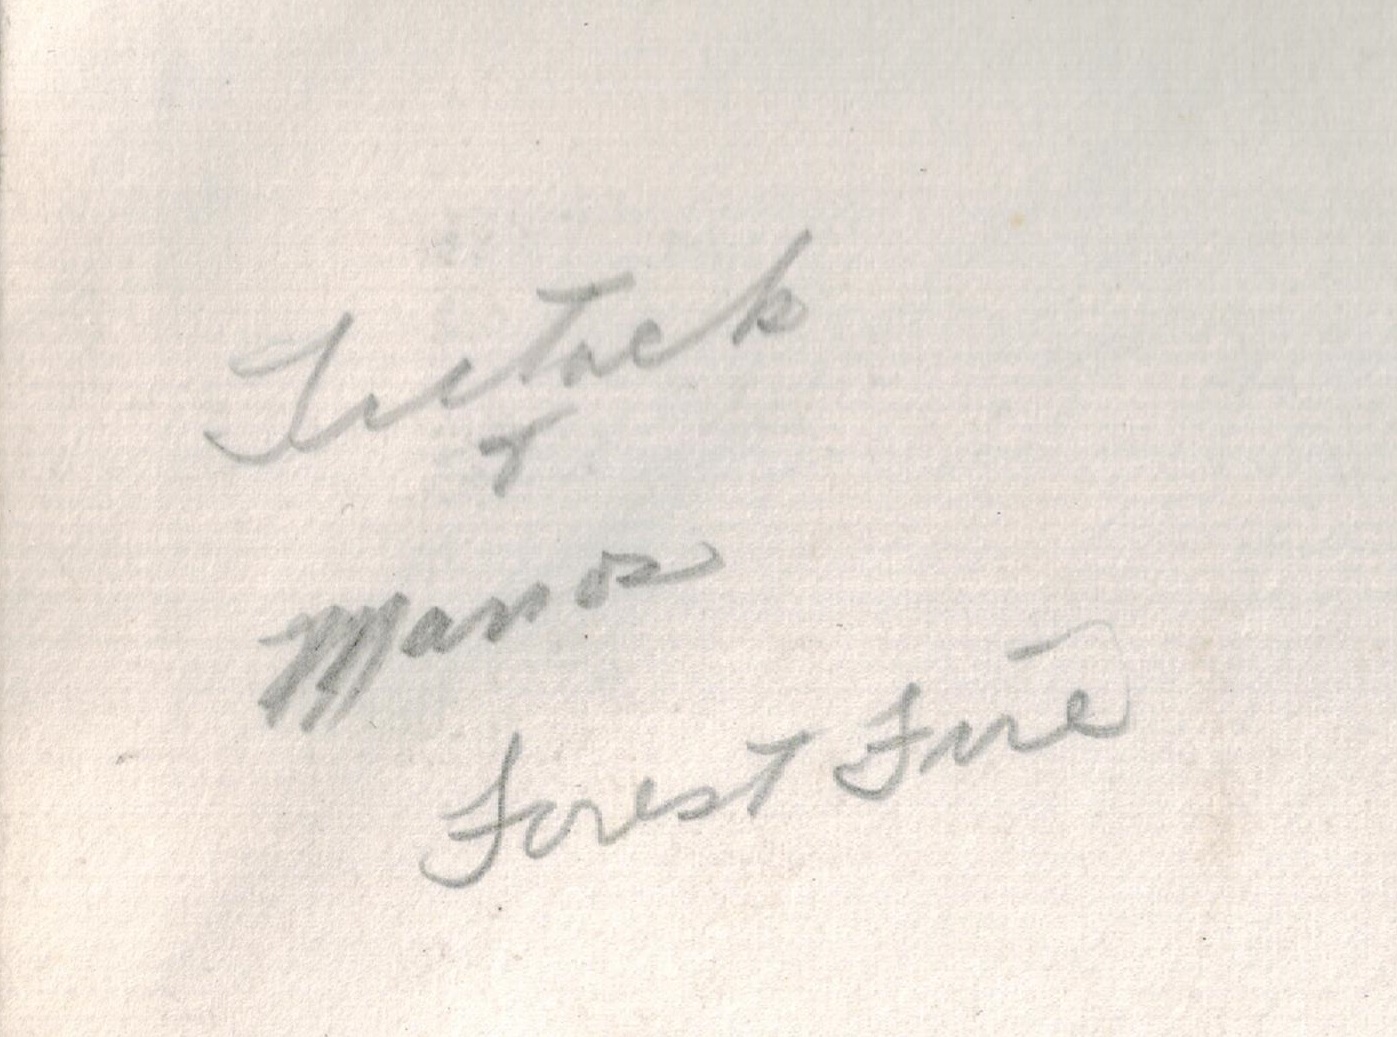 Tictack
+
Manos
Forest Fire